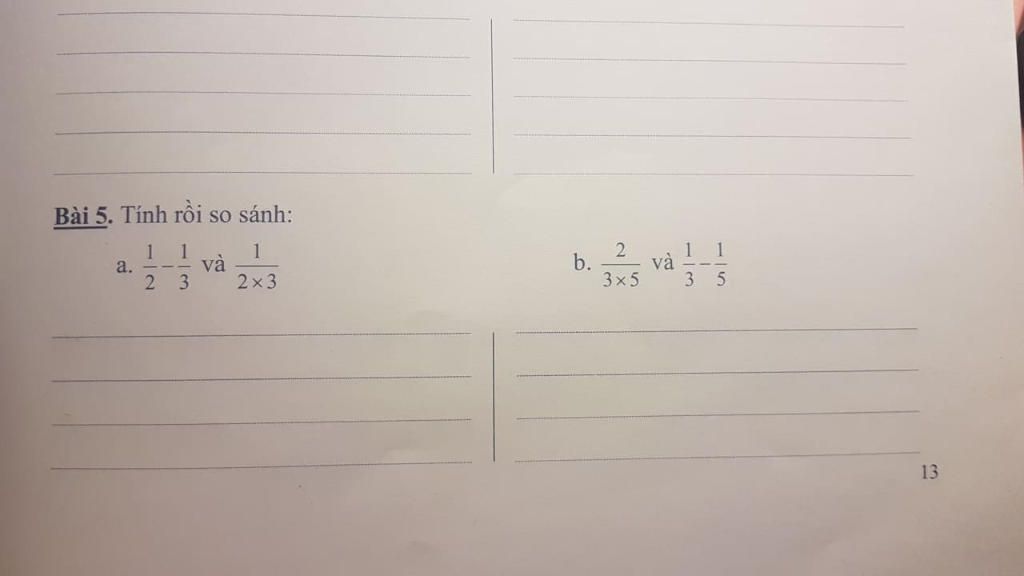 Bài 5. Tính rồi so sánh:
a. 1/2 − 1/3 và 1/(2×3)
b. 2/(3×5) và 1/3 − 1/5
13